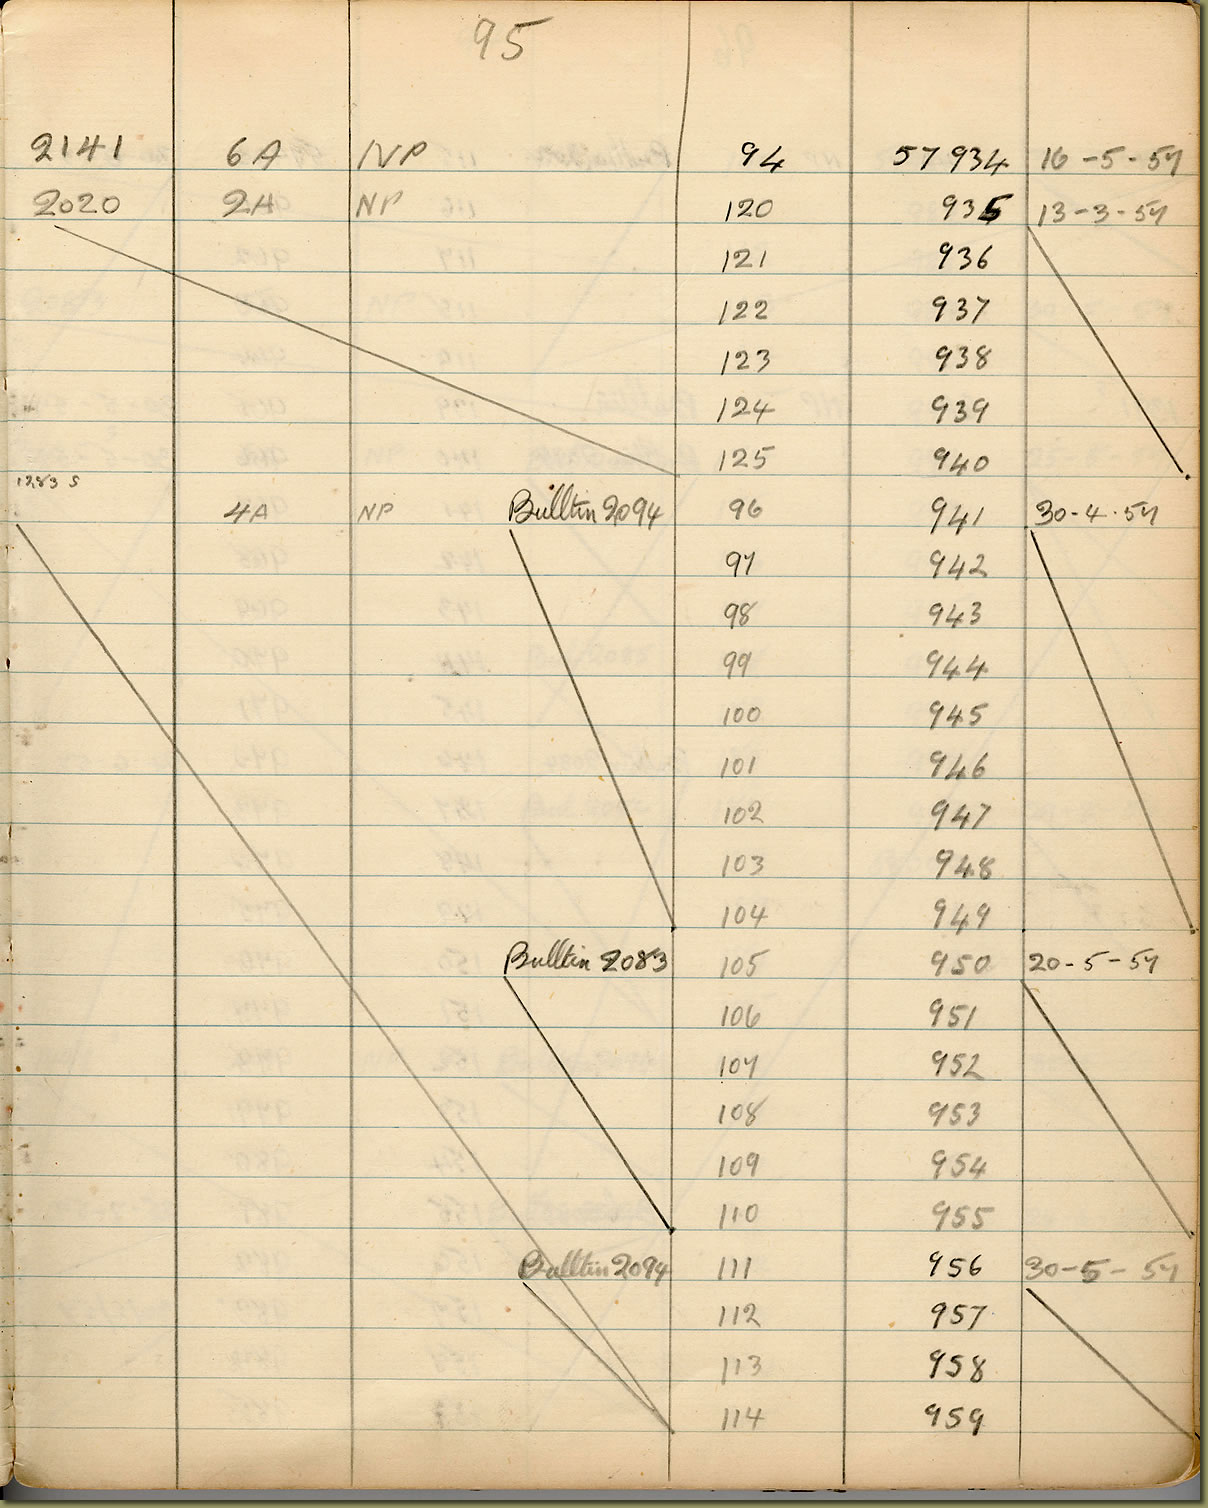 95
2141 6A NP 94 57 934 16-5-57
2020 2A NP 120 935 13-3-57
121 936
122 937
123 938
124 939
125 940
1283 S
4A NP Bulltin 2094 96 941 30-4-57
97 942
98 943
99 944
100 945
101 946
102 947
103 948
104 949
Bulltin 2083 105 950 20-5-57
106 951
107 952
108 953
109 954
110 955
Bulltin 2094 111 956 30-5-57
112 957
113 958
114 959